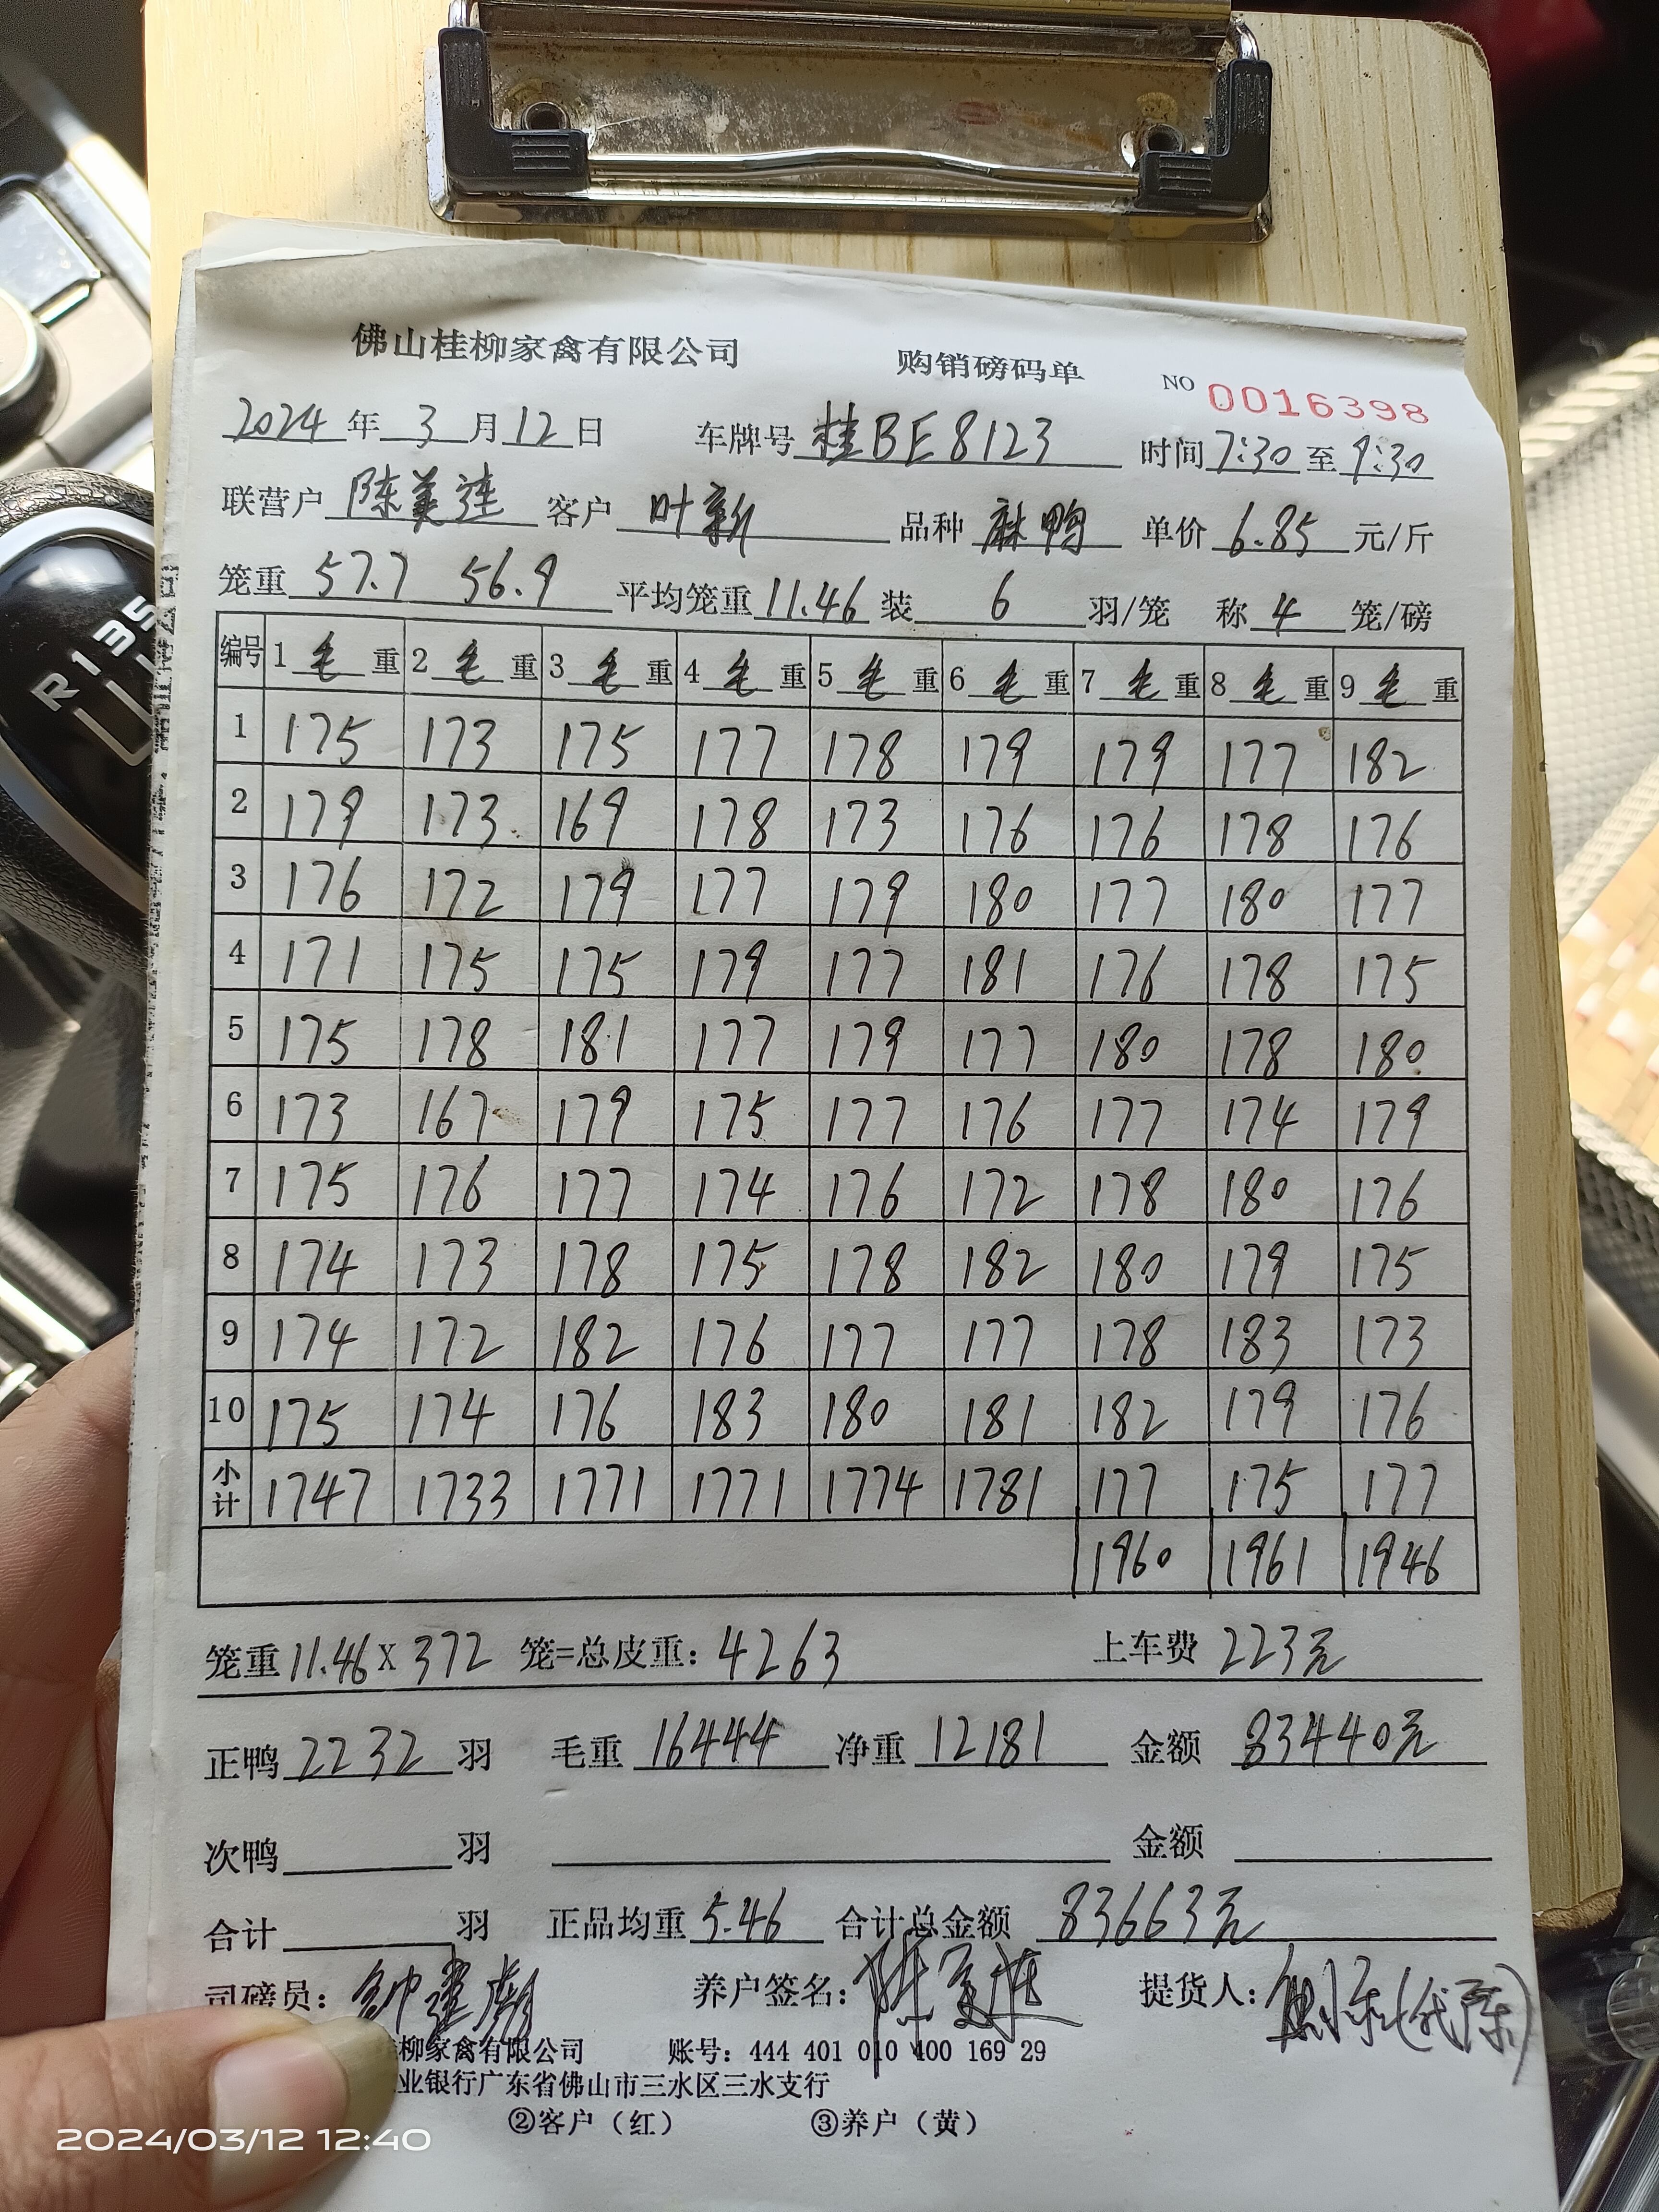 佛山桂柳家禽有限公司 购销磅码单 NO 0016398
2024年3月12日 车牌号 桂BE8123 时间 7:30 至 9:30
联营户 陈美莲 客户 叶新 品种 麻鸭 单价 6.85 元/斤
笼重 57.7 56.9 平均笼重 11.46 装 6 羽/笼 称 4 笼/磅
编号 1 毛 重 2 毛 重 3 毛 重 4 毛 重 5 毛 重 6 毛 重 7 毛 重 8 毛 重 9 毛 重
1 175 173 175 177 178 179 179 177 182
2 179 173 169 178 173 176 176 178 176
3 176 172 179 177 179 180 177 180 177
4 171 175 175 179 177 181 176 178 175
5 175 178 181 177 179 177 180 178 180
6 173 167 179 175 177 176 177 174 179
7 175 176 177 174 176 172 178 180 176
8 174 173 178 175 178 182 180 179 175
9 174 172 182 176 177 177 178 183 173
10 175 174 176 183 180 181 182 179 176
小计 1747 1733 1771 1771 1774 1781 177 175 177
1960 1961 1946
笼重 11.46 X 372 笼=总皮重: 4263 上车费 223元
正鸭 2232 羽 毛重 16444 净重 12181 金额 83440元
次鸭 羽 金额
合计 羽 正品均重 5.46 合计总金额 83663元
司磅员: 养户签名: 陈美莲 提货人:
柳家禽有限公司 账号: 444 401 010 400 169 29
业银行广东省佛山市三水区三水支行
②客户（红） ③养户（黄）
R 1 3 5
2024/03/12 12:40